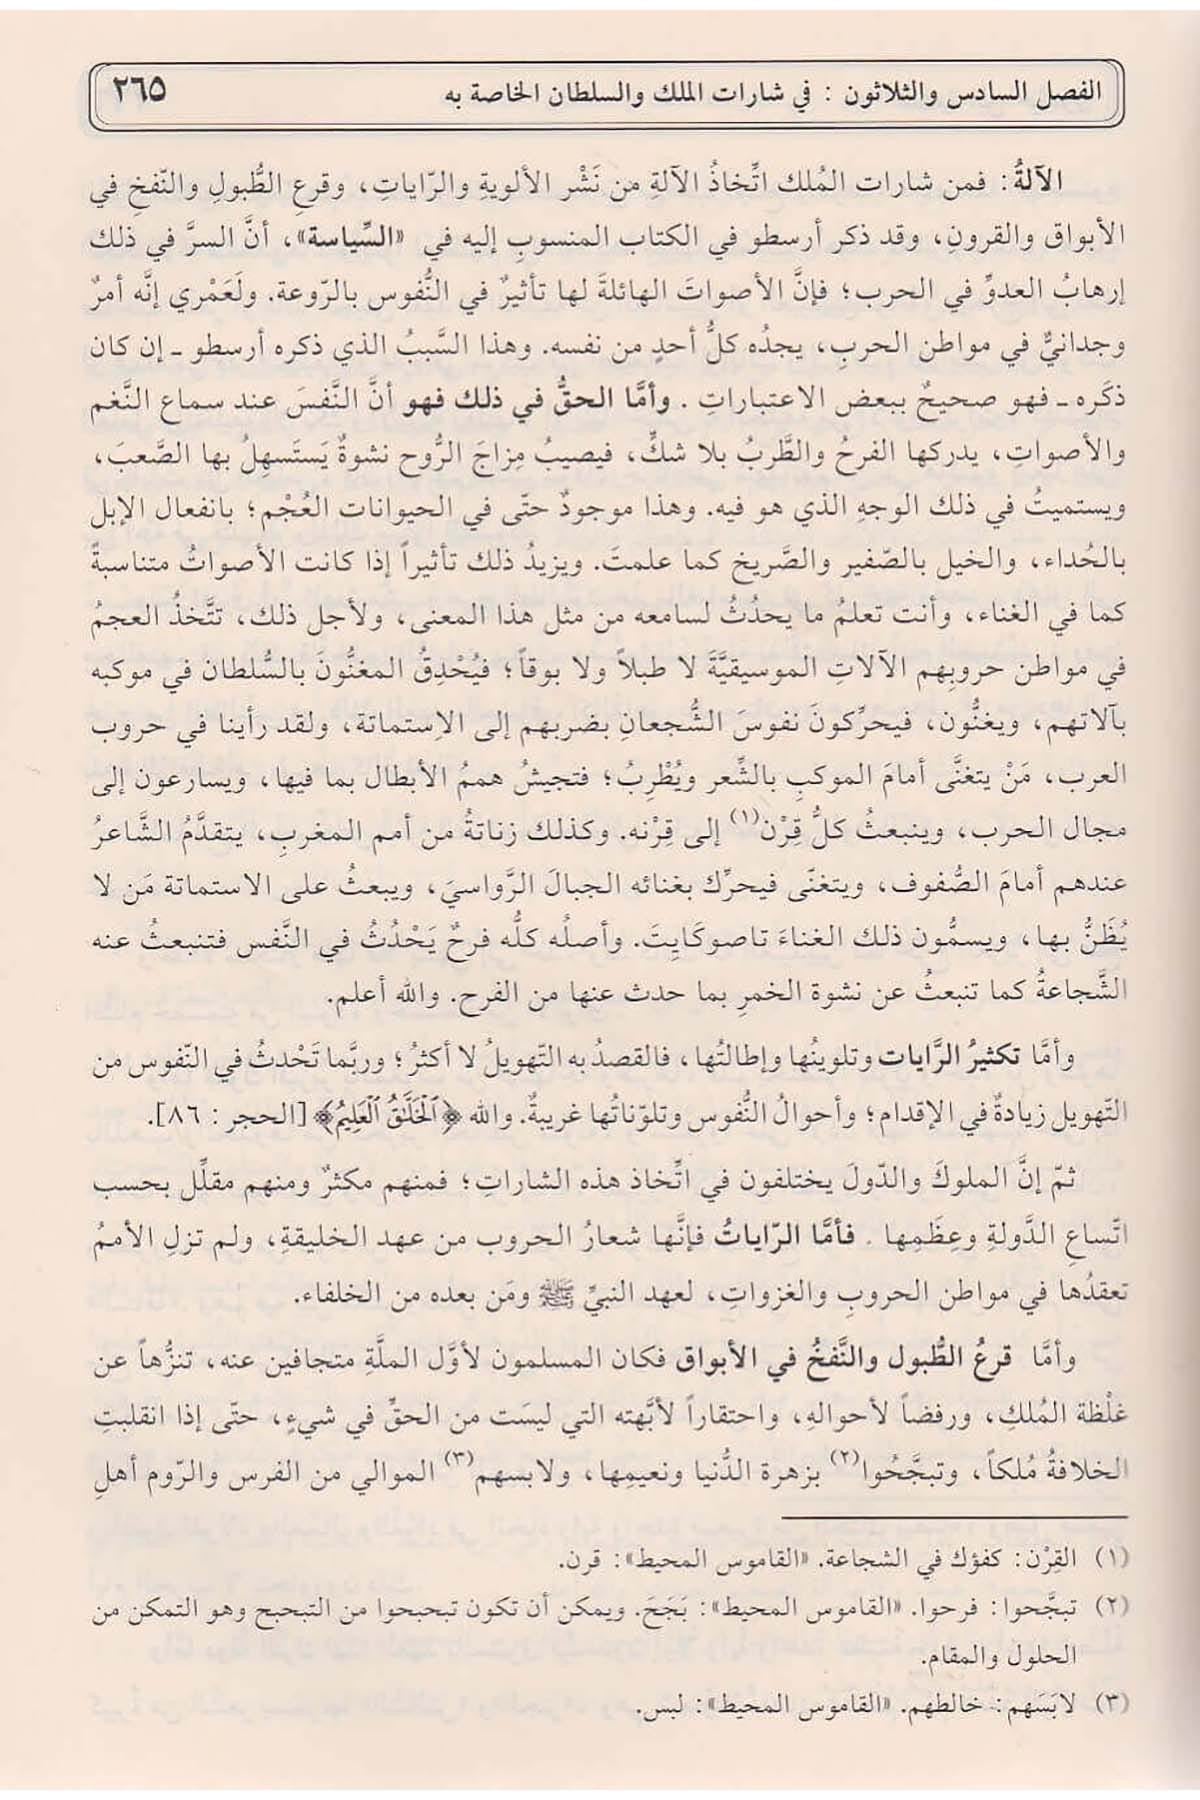 الفصل السادس والثلاثون : في شارات الملك والسلطان الخاصة به ٢٦٥
الآلةُ: فمن شارات المُلك اتِّخاذُ الآلةِ من نَشْر الألويةِ والرّاياتِ، وقرعِ الطُّبولِ والنّفخِ في
الأبواق والقرونِ، وقد ذكر أرسطو في الكتاب المنسوبِ إليه في «السِّياسة»، أنَّ السرَّ في ذلك
إرهابُ العدوِّ في الحرب؛ فإنَّ الأصواتَ الهائلةَ لها تأثيرٌ في النُّفوس بالرّوعة. ولَعَمْري إنَّه أمرٌ
وجدانيٌّ في مواطن الحربِ، يجدُه كلُّ أحدٍ من نفسه. وهذا السَّببُ الذي ذكره أرسطو ـ إن كان
ذكَره ـ فهو صحيحٌ ببعض الاعتباراتِ . وأمَّا الحقُّ في ذلك فهو أنَّ النَّفسَ عند سماع النَّغم
والأصواتِ، يدركها الفرحُ والطَّربُ بلا شكٍّ، فيصيبُ مِزاجَ الرُّوح نشوةٌ يَستَسهِلُ بها الصَّعبَ،
ويستميتُ في ذلك الوجهِ الذي هو فيه. وهذا موجودٌ حتّى في الحيوانات العُجْم؛ بانفعال الإبل
بالحُداء، والخيل بالصّفير والصَّريخ كما علمتَ. ويزيدُ ذلك تأثيراً إذا كانت الأصواتُ متناسبةً
كما في الغناء، وأنت تعلمُ ما يحدُثُ لسامعه من مثل هذا المعنى، ولأجل ذلك، تتَّخذُ العجمُ
في مواطن حروبِهم الآلاتِ الموسيقيَّةَ لا طبلاً ولا بوقاً؛ فيُحْدِقُ المغنُّونَ بالسُّلطان في موكبه
بآلاتهم، ويغنُّون، فيحرِّكونَ نفوسَ الشُّجعانِ بضربهم إلى الاِستماتة، ولقد رأينا في حروب
العرب، مَنْ يتغنَّى أمامَ الموكبِ بالشِّعر ويُطْرِبُ؛ فتجيشُ هممُ الأبطال بما فيها، ويسارعون إلى
مجال الحرب، وينبعثُ كلُّ قِرْن(١) إلى قِرْنه. وكذلك زناتةُ من أمم المغربِ، يتقدَّمُ الشَّاعرُ
عندهم أمامَ الصُّفوف، ويتغنّى فيحرِّك بغنائه الجبالَ الرَّواسيَ، ويبعثُ على الاستماتة مَن لا
يُظَنُّ بها، ويسمُّون ذلك الغناءَ تاصوكَايِتَ. وأصلُه كلُّه فرحٌ يَحْدُثُ في النَّفس فتنبعثُ عنه
الشَّجاعةُ كما تنبعثُ عن نشوة الخمرِ بما حدث عنها من الفرح. والله أعلم.
وأمَّا تكثيرُ الرَّايات وتلوينُها وإطالتُها، فالقصدُ به التّهويلُ لا أكثرُ؛ وربَّما تَحْدثُ في النّفوس من
التّهويل زيادةٌ في الإقدام؛ وأحوالُ النُّفوس وتلوّناتُها غريبةٌ. والله ﴿ٱلْخَلَّٰقُ ٱلْعَلِيمُ﴾ [الحجر : ٨٦].
ثمّ إنَّ الملوكَ والدّولَ يختلفون في اتِّخاذ هذه الشاراتِ؛ فمنهم مكثرٌ ومنهم مقلِّل بحسب
اتّساعِ الدَّولةِ وعِظَمِها . فأمَّا الرّاياتُ فإنَّها شعارُ الحروب من عهد الخليقةِ، ولم تزلِ الأممُ
تعقدُها في مواطن الحروبِ والغزواتِ، لعهد النبيِّ ﷺ ومَن بعده من الخلفاء.
وأمَّا قرعُ الطُّبول والنَّفخُ في الأبواق فكان المسلمون لأوَّل الملَّةِ متجافين عنه، تنزُّهاً عن
غلْظة المُلكِ، ورفضاً لأحوالهِ، واحتقاراً لأبَّهته التي ليسَت من الحقِّ في شيءٍ، حتّى إذا انقلبتِ
الخلافةُ مُلكاً، وتبجَّحُوا(٢) بزهرة الدُّنيا ونعيمِها، ولابسهم(٣) الموالي من الفرس والرّوم أهلِ
(١) القِرْن: كفؤك في الشجاعة. «القاموس المحيط»: قرن.
(٢) تبجَّحوا: فرحوا. «القاموس المحيط»: بَجَحَ. ويمكن أن تكون تبحبحوا من التبحبح وهو التمكن من
الحلول والمقام.
(٣) لابَسَهم: خالطهم. «القاموس المحيط»: لبس.